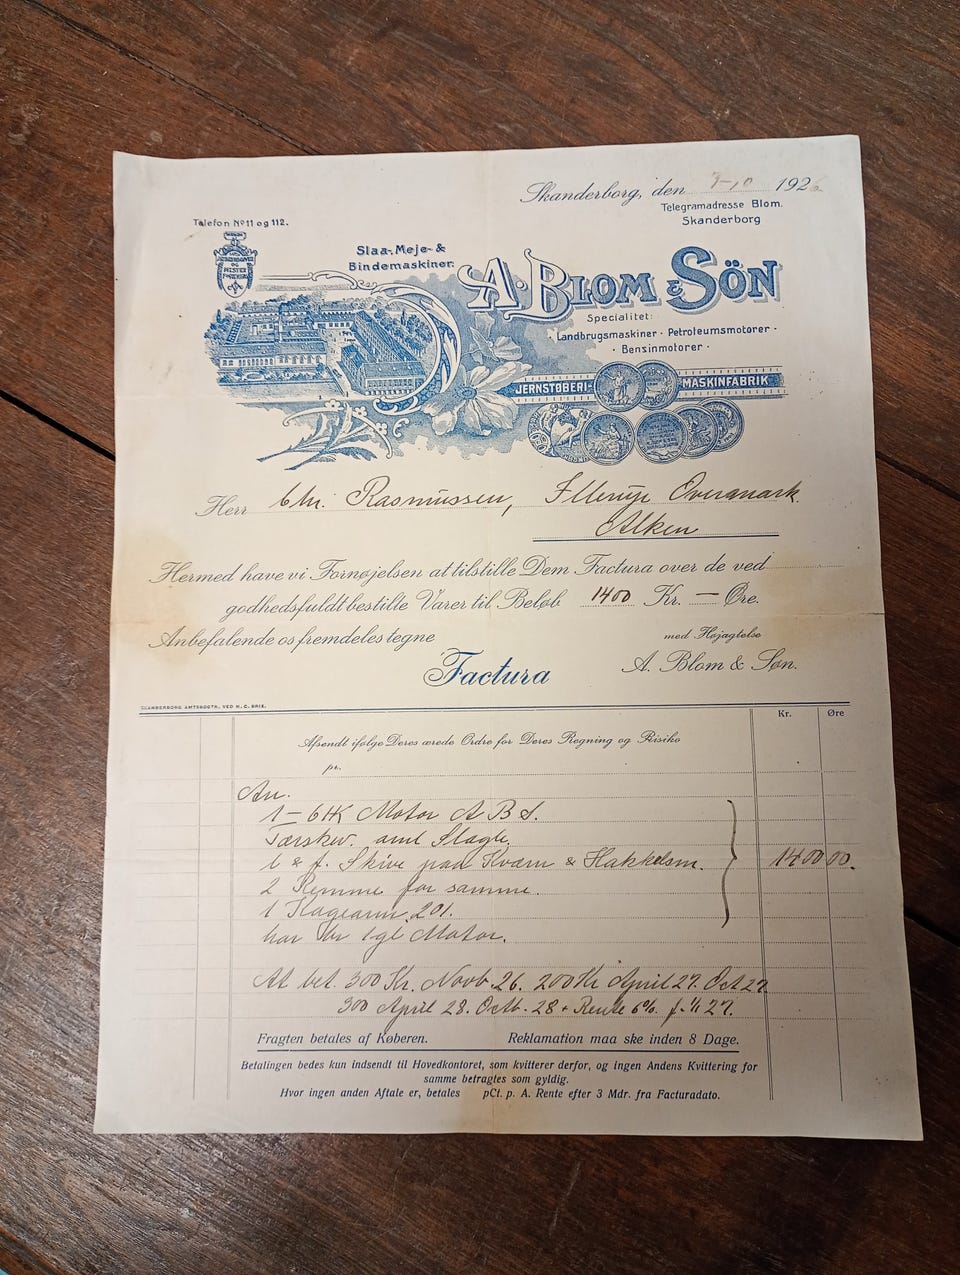 Skanderborg, den 7-10 1926
Telegramadresse Blom.
Skanderborg
Telefon No 11 og 112.
Slaa-, Meje- &
Bindemaskiner.
A. BLOM & SÖN
Specialitet:
Landbrugsmaskiner · Petroleumsmotorer ·
· Bensinmotorer ·
JERNSTØBERI- MASKINFABRIK
Herr Chr. Rasmussen, Illerup Overmark
Alken
Hermed have vi Fornøjelsen at tilstille Dem Factura over de ved
godhedsfuldt bestilte Varer til Beløb 1400 Kr. — Øre.
Anbefalende os fremdeles tegne
med Højagtelse
Factura
A. Blom & Søn.
SKANDERBORG AMTSBOGTR. VED H. C. BRIX.
Kr. Øre
Afsendt ifølge Deres ærede Ordre for Deres Regning og Risiko
pr.
An.
1 - 6 HK Motor A B S.
Tærskev. amt Slagle.
1 & f. Skive paa Kværn & Hakkelsm. 1400 00.
2 Remme for samme.
1 201.
har Motor.
At bet. 300 Kr. Novb. 26. 200 Kr April 27. Oct 27.
300 April 28. Octb. 28 + Rente 6% f. 1/11 27.
Fragten betales af Køberen. Reklamation maa ske inden 8 Dage.
Betalingen bedes kun indsendt til Hovedkontoret, som kvitterer derfor, og ingen Andens Kvittering for
samme betragtes som gyldig.
Hvor ingen anden Aftale er, betales pCt. p. A. Rente efter 3 Mdr. fra Facturadato.